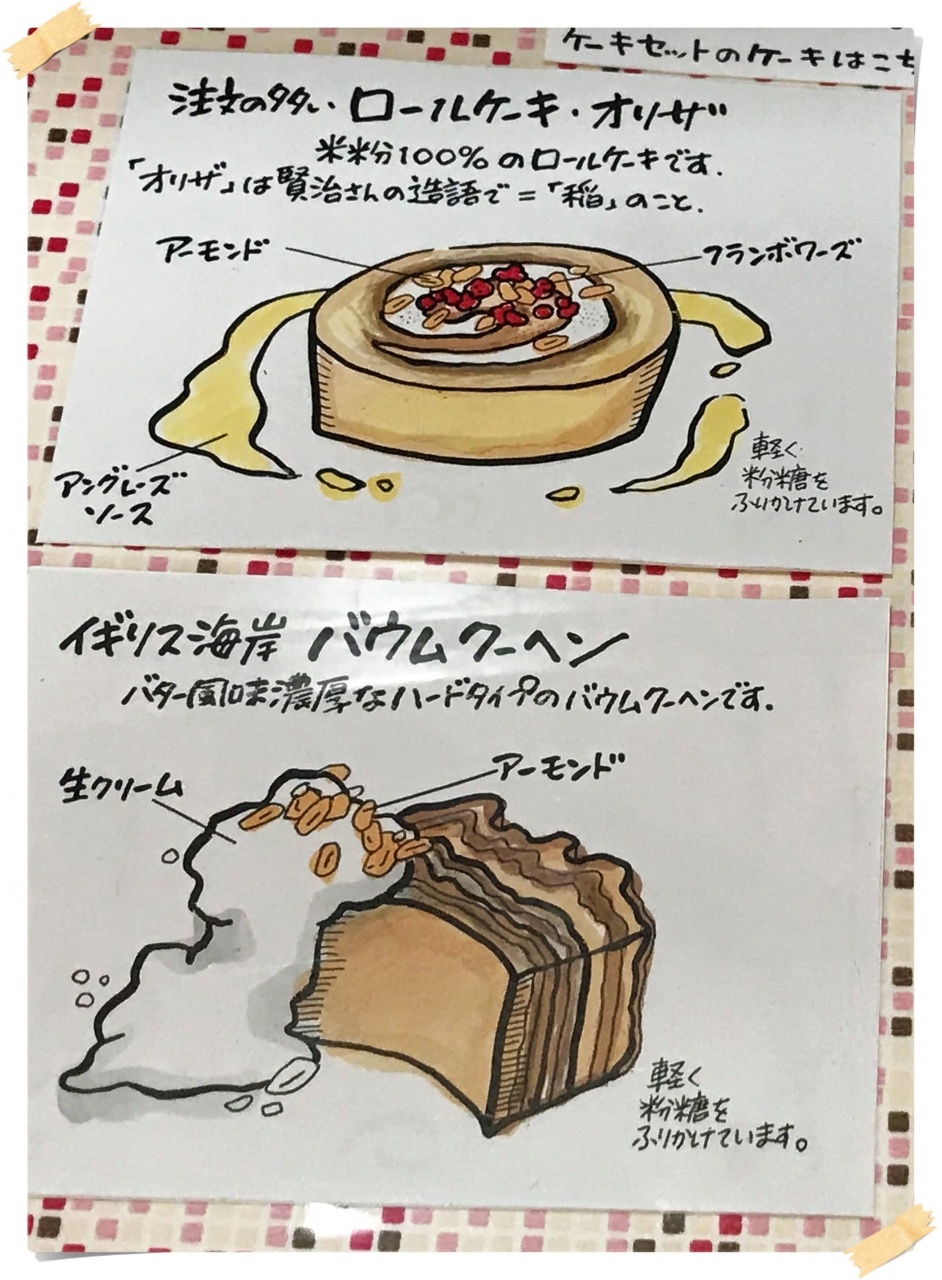 ケーキセットのケーキはこち
注文の多い ロールケーキ・オリザ
米粉100%のロールケーキです.
「オリザ」は賢治さんの造語で=「稲」のこと.
アーモンド
フランボワーズ
アングレーズ
ソース
軽く
粉糖を
ふりかけています。
イギリス海岸 バウムクーヘン
バター風味濃厚なハードタイプのバウムクーヘンです.
生クリーム
アーモンド
軽く
粉糖を
ふりかけています。